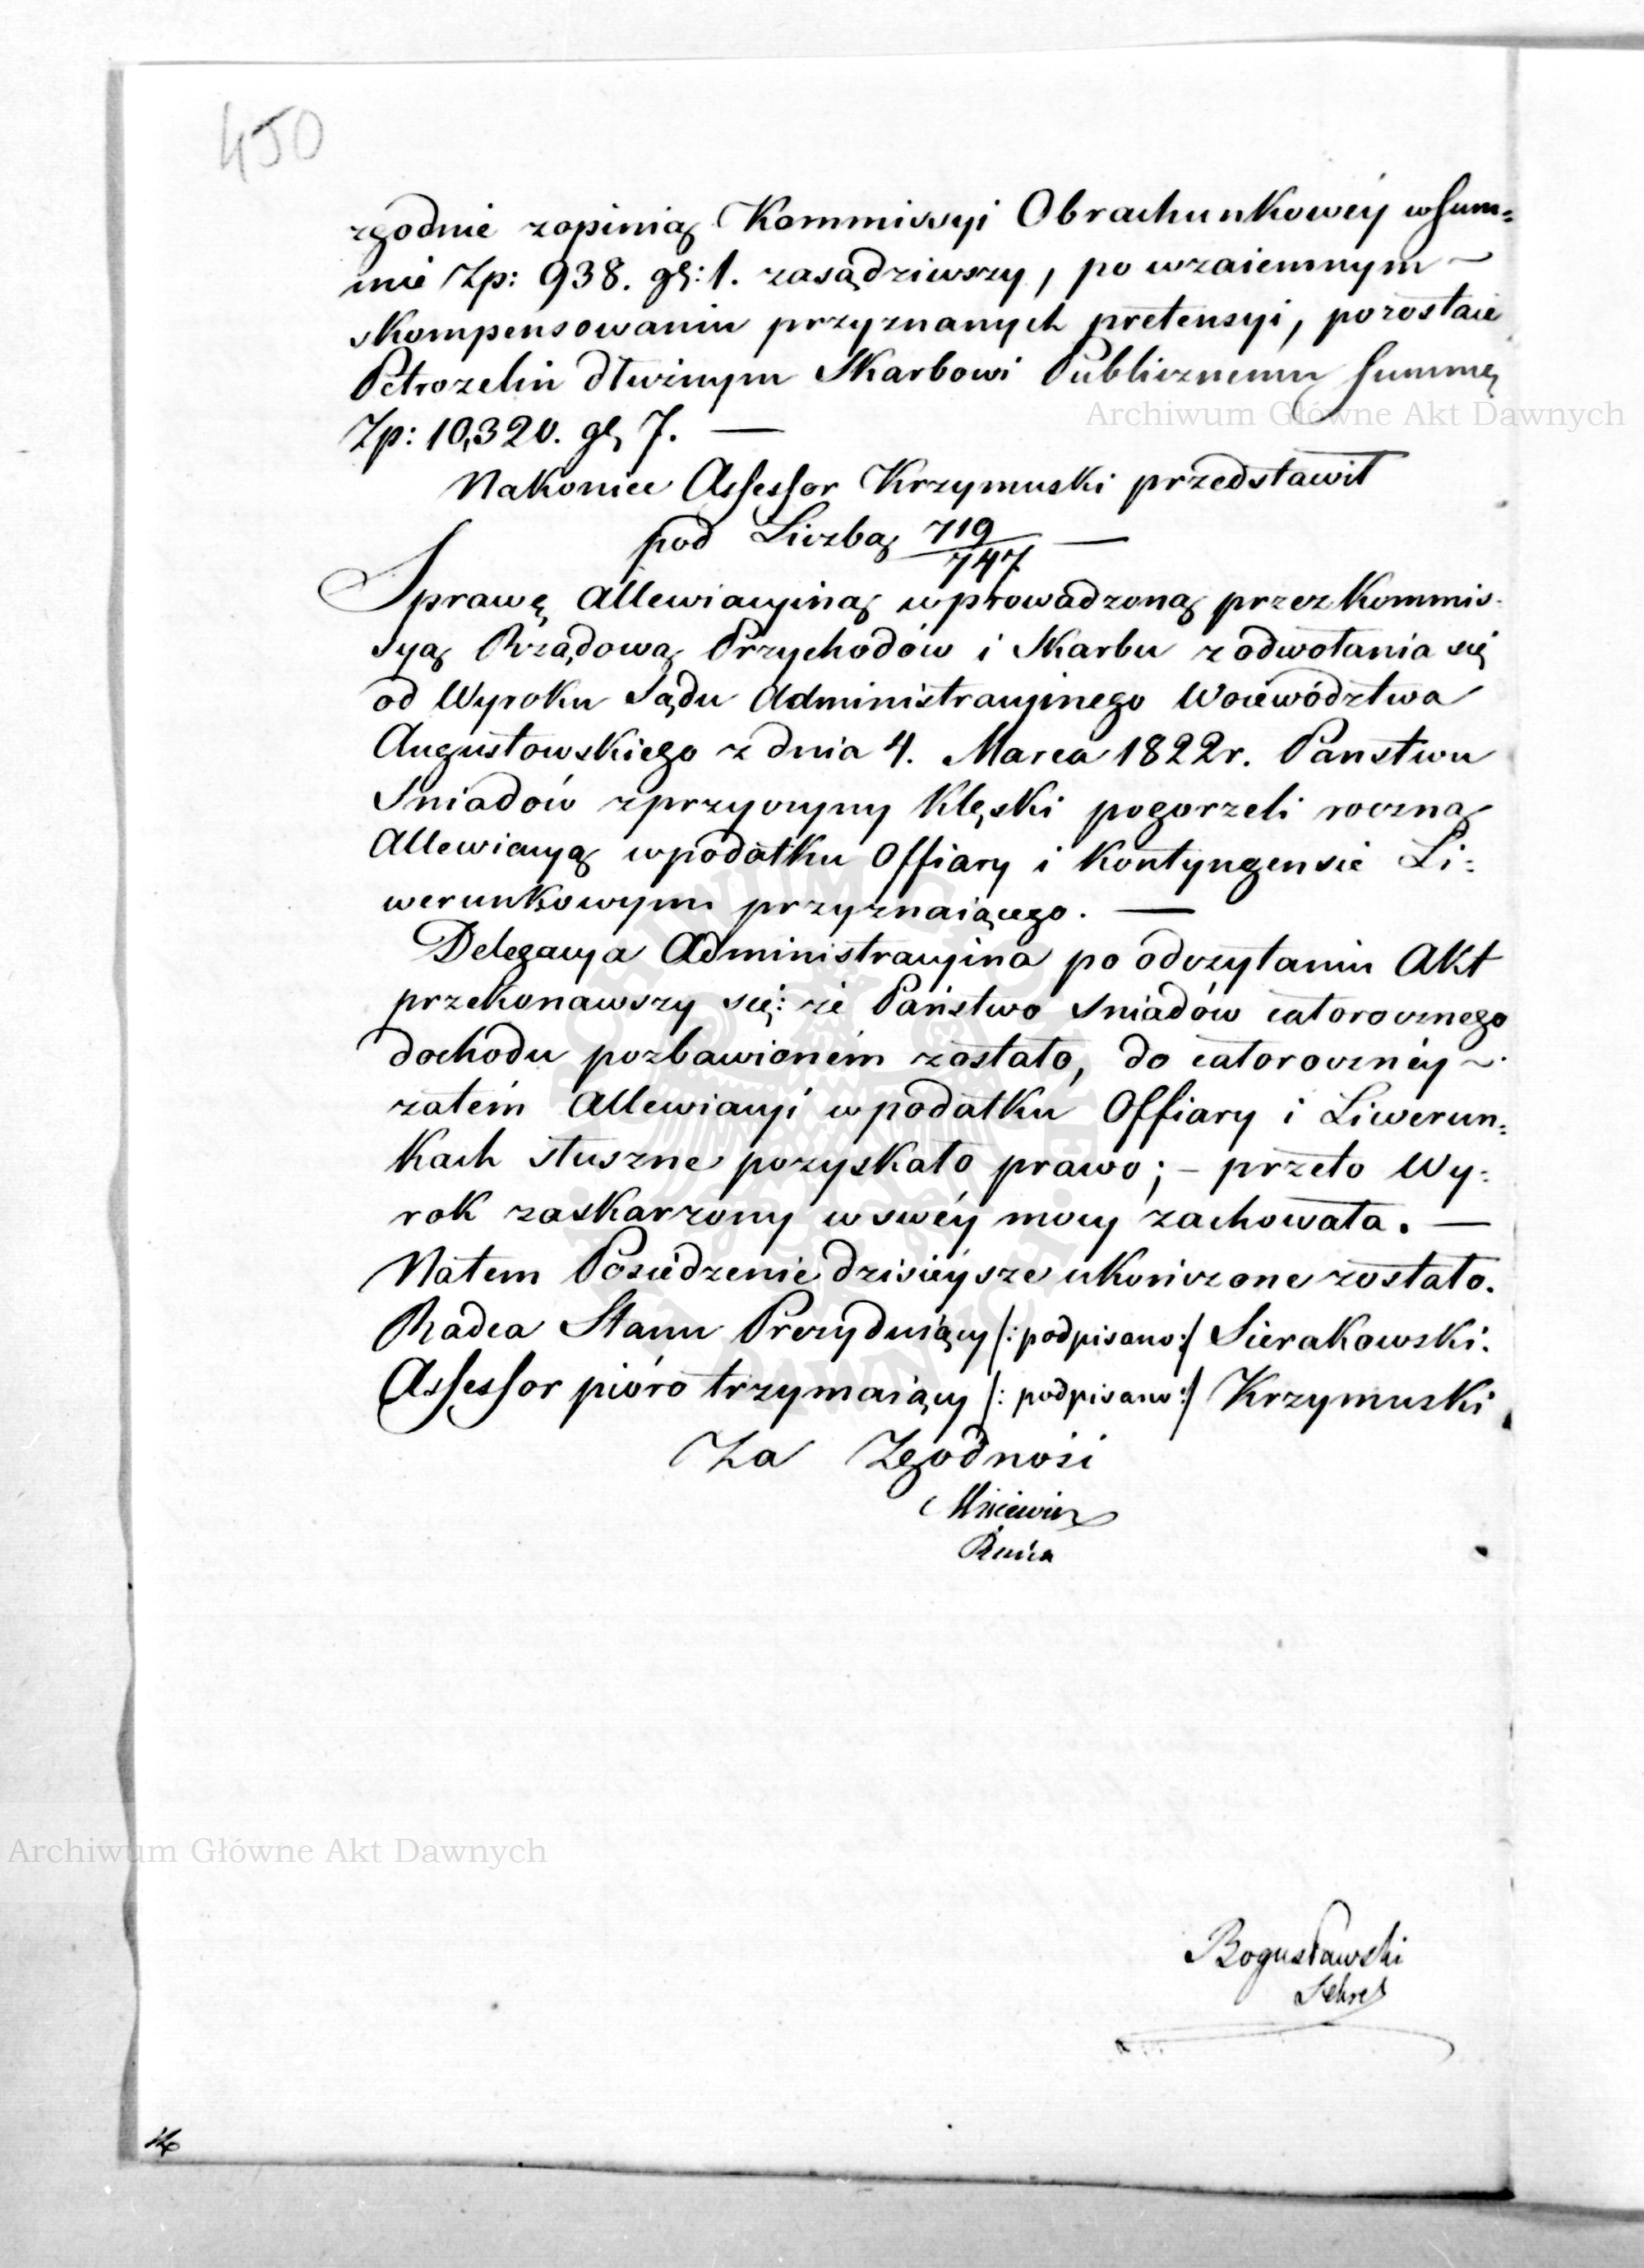 450
zgodnie zopinią Kommissyi Obrachunkowéy wSum=
mie Zp: 938. gl: 1. zasądziwszy, po wzaiemnym ~
skompensowaniu przyznanych pretensyi, pozostaie
Petrozelin dłużnym Skarbowi Publicznemu Summę
Archiwum Główne Akt Dawnych
Zp: 10,320. gl, 7. —
Nakoniec Assessor Krzymuski przedstawił
pod Liczbą 719/747 —
Sprawę Allewiacyiną wprowadzoną przez Kommis-
syą Rządową Przychodów i Skarbu z odwołania się
od Wyroku Sądu Administracyinego Woiewództwa
Augustowskiego z dnia 4. Marca 1822 r. Panstwu
Sniadów zprzyczyny klęski pogorzeli roczną
Allewiacyą wpodatku Offiary i Kontyngensie Li=
werunkowym przyznaiącego. —
Delegacya Administracyina po odczytaniu Akt
przekonawszy się: że Państwo Sniadów całorocznego
dochodu pozbawioném zostało, do całorocznéy ~
zatém Allewiacyi wpodatku Offiary i Liwerun=
kach słuszne pozyskało prawo; – przeto Wy=
rok zaskarzony wswéy mocy zachowała. —
Natem Posiedzenie dzisiéysze ukończone zostało.
Radca Stanu Prezyduiący /: podpisano :/ Sierakowski.
Assessor pióro trzymaiący /: podpisano :/ Krzymuski
Za Zgodność
Archiwum Główne Akt Dawnych
Bogusławski
Sekret